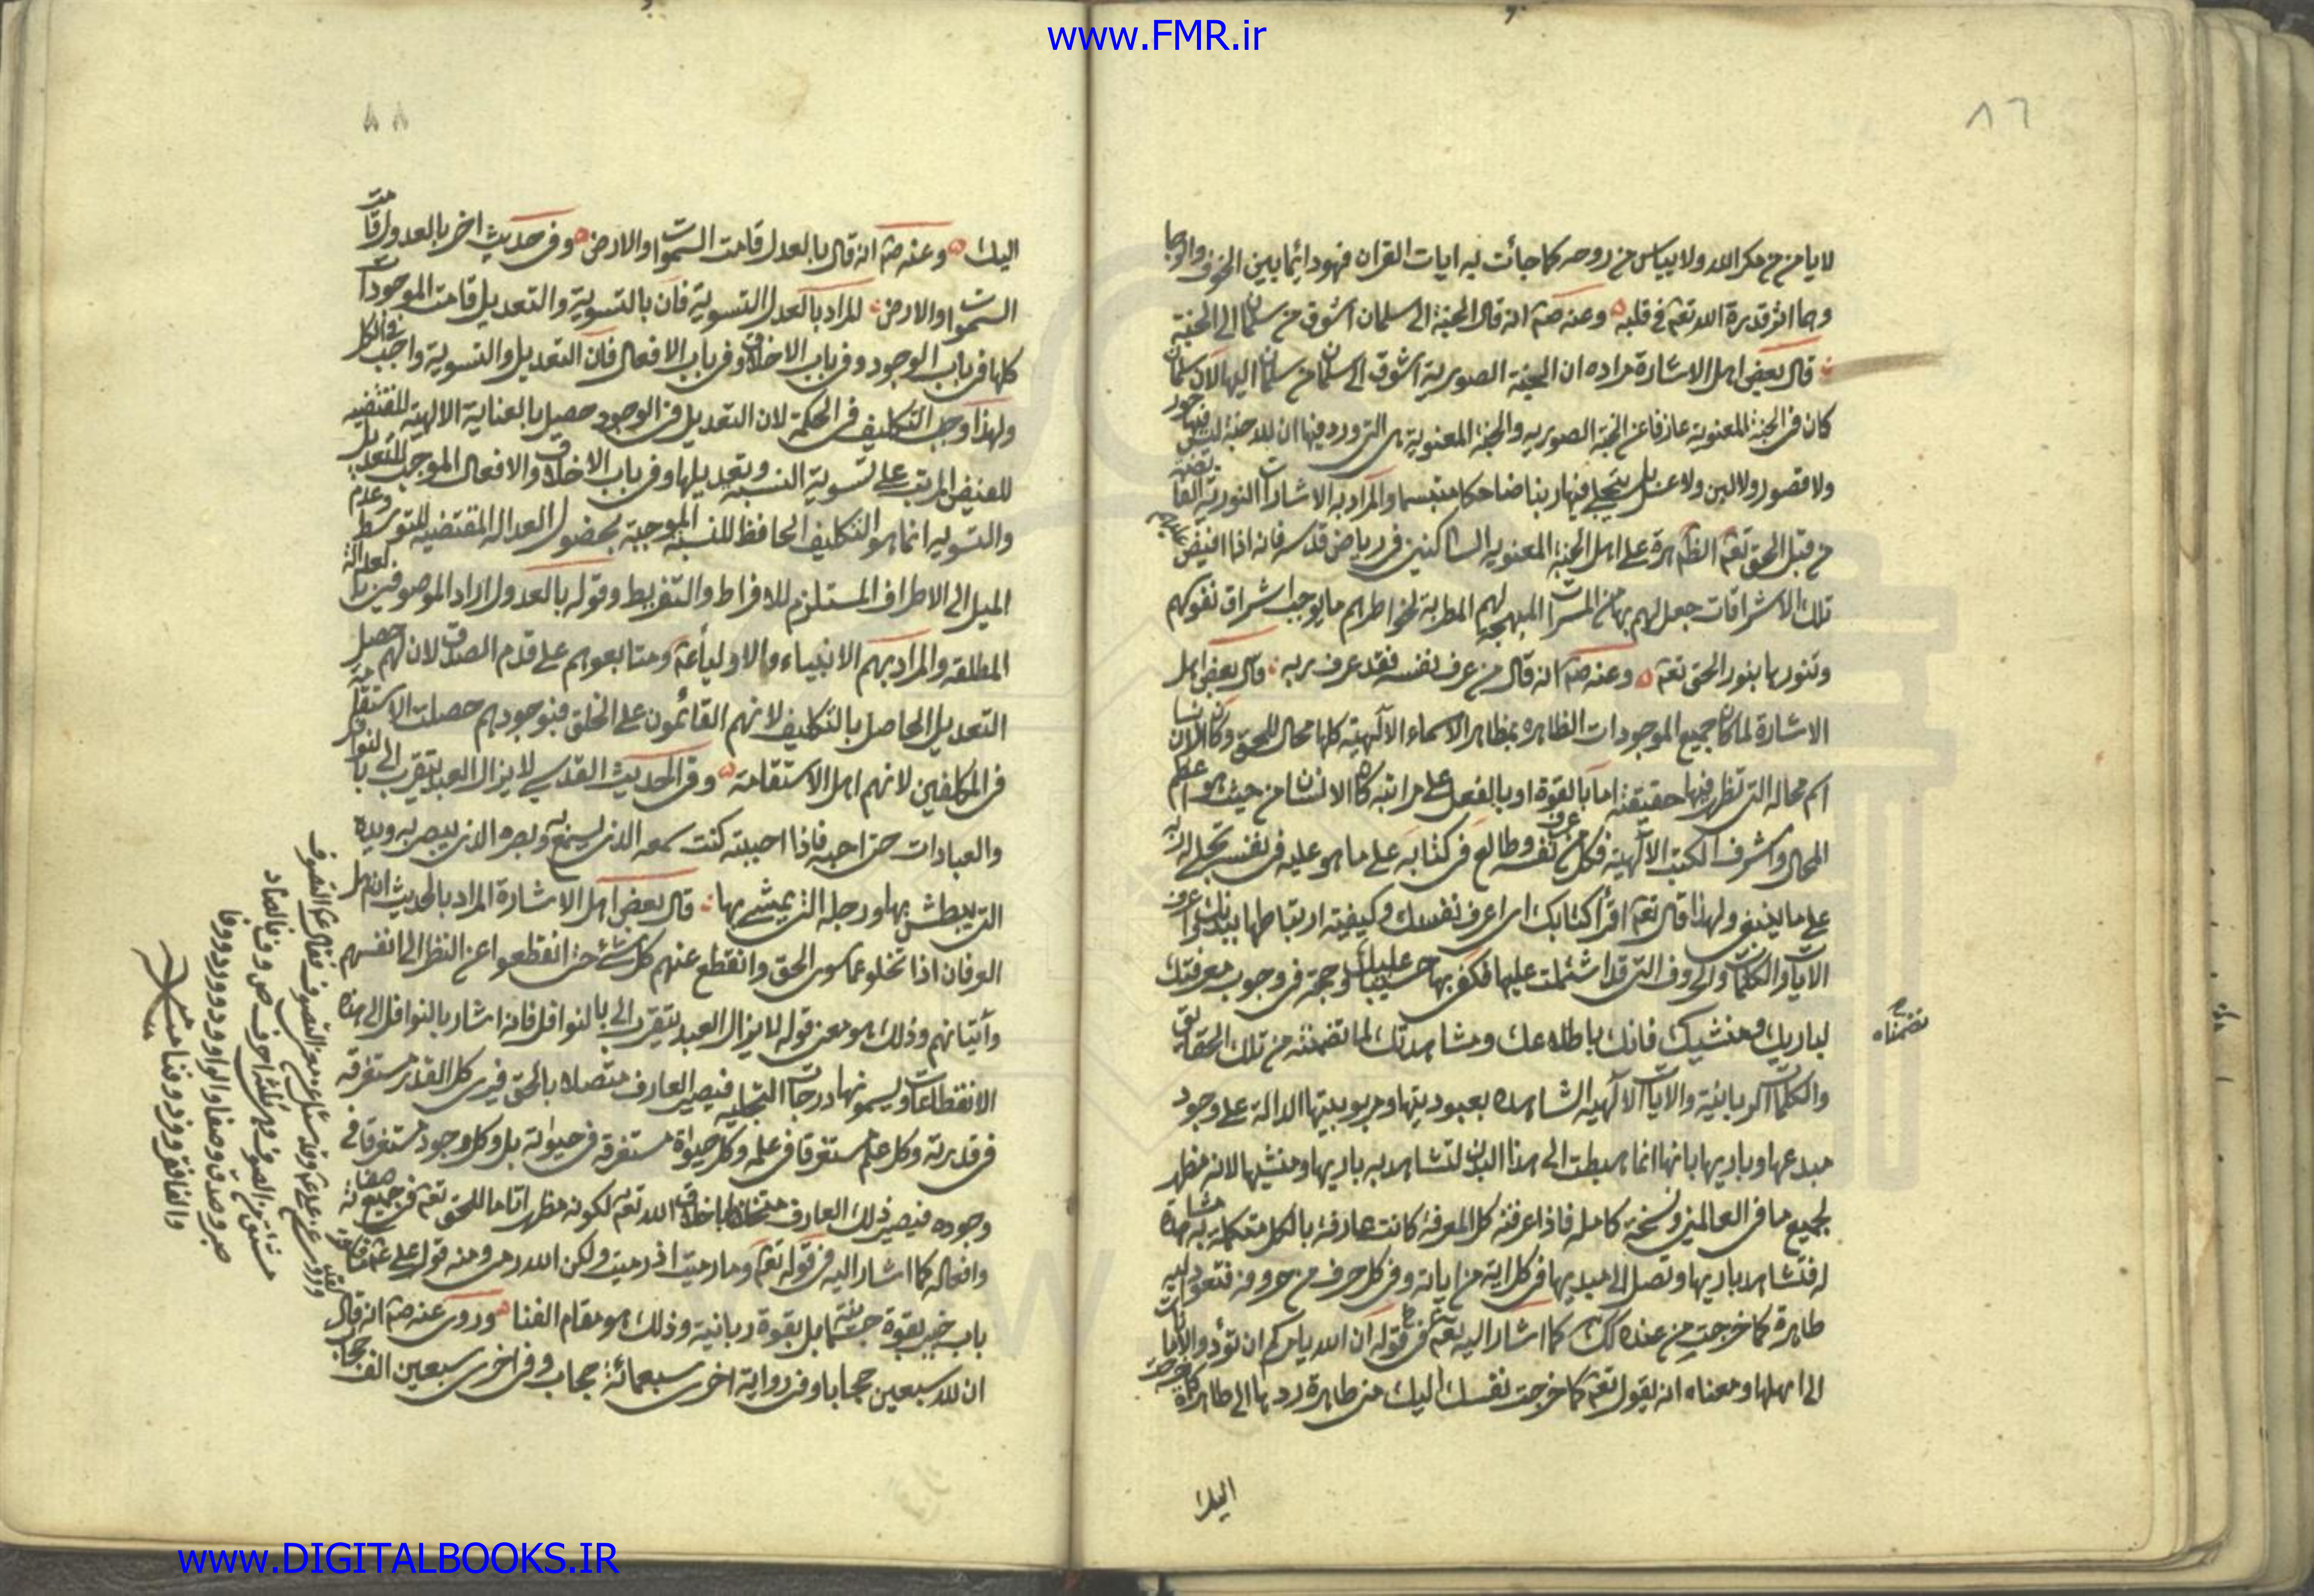 www.FMR.ir
٨٦
لايامن من مكر الله ولا يياس من روحه كما جائت به ايات القران فهو دائما بين الخوف والرجا
وهما اثر قدرة الله تعم في قلبه وعنه صم انه قال الجنة الى سلمان اشوق من سلمان الى الجنة
قال بعض اهل الاشارة مراده ان الجنة الصورية اشوق الى سلمان من سلمان اليها لان سلمان
كان في الجنة المعنوية عازفا عن الجنة الصوريه والجنة المعنوية هى التى ورد فيها ان لله جنة ليس فيها حور
ولا قصور ولا لبن ولا عسل بل يتجلى فيها ربنا ضاحكا متبسما والمراد به الاشارات النورية الفائضة
من قبل الحق تعم الظاهرة على اهل الجنة المعنويه الساكنين فى رياض قدسه فانه اذا افيض عليهم
تلك الاشراقات جعل لهم بها من المسرات المبهجة لهم المطربة لخواطرهم ما يوجب اشراق نفوسهم
وتنورها بنور الحق تعم وعنه صم انه قال من عرف نفسه فقد عرف ربه قال بعض اهل
الاشارة لما كان جميع الموجودات الظاهره بمظاهر الاسماء الالهية كلها محال للحق وكان الانسان
اتم محاله التى تظهر فيها حقيقته اما بالقوة او بالفعل على مراتبه كان الانسان من حيث هو اعظم
المحال واشرف الكتب الالهية فكل من عرف نفسه وطالع فى كتابه على ما هو عليه فى نفسه تجلى له ربه
على ما ينبغى ولهذا قال تعم اقرأ كتابك اى اعرف نفسك وكيفية ارتباطها ببدنك واعرف
الايات والكلمات والحروف التى قد اشتملت عليها فكفى بها عليك حسيبا وحجة فى وجوب معرفتك
لباريك ومنشيك فانك باطلاعك ومشاهدتك لما تضمنته من تلك الحقايق
تضمناه
والكلمات الربانية والايات الالهيه الشاهده بعبوديتها ومربوبيتها الدالة على وجود
مبدعها وباريها بانها انما هبطت الى هذا البدن لتشاهد به باريها ومنشيها لانه مظهر
لجميع ما فى العالمين ونسخة كامله فاذا عرفته كل المعرفة كانت عارفة بالكل متكملة به مشاهدة
له فتشاهد باريها وتصل الى مبديها فى كل اية من اياته وفى كل حرف من حروفه فتعود اليه
طاهرة كما خرجت من عنده كما اشار اليه تعم فى قوله ان الله يامركم ان تؤدوا الامانات
الى اهلها ومعناه انه يقول تعم كما خرجت نفسك اليك منى طاهرة ردها الى طاهرة كما خرجت
اليك
٨٨
اليك وعنه صم انه قال بالعدل قامت السموات والارض وفى حديث اخر بالعدول قامت
السموات والارض المراد بالعدل التسوية فان بالتسوية والتعديل قامت الموجودات
كلها فى باب الوجود وفى باب الاخلاق وفى باب الافعال فان التعديل والتسوية واجب فى الكل
ولهذا وجب التكليف فى الحكمة لان التعديل فى الوجود حصل بالعناية الالهية المقتضيه
للفيض المرتب على تسوية النسبة وتعديلها وفى باب الاخلاق والافعال الموجب للتعديل
والتسويه انما هو التكليف الحافظ للنسبة الموجبة لحصول العداله المقتضيه للتوسط وعدم
الميل الى الاطراف المستلزم للافراط والتفريط وقوله بالعدول اراد الموصوفين بالعدالة
المطلقه والمراد بهم الانبياء والاولياء عم ومتابعوهم على قدم الصدق لان لهم حصل
التعديل الحاصل بالتكليف لانهم القائمون على الخلق فبوجودهم حصلت الاستقامة
فى المكلفين لانهم اهل الاستقامة وفى الحديث القدسي لا يزال العبد يتقرب الى بالنوافل
والعبادات حتى احبه فاذا احببته كنت سمعه الذى يسمع به وبصره الذى يبصر به ويده
التى يبطش بها ورجله التى يمشى بها قال بعض اهل الاشارة المراد بالحديث ان اهل
العرفان اذا تخلوا عما سوى الحق وانقطع عنهم كل شئ حتى انقطعوا عن النظر الى انفسهم
وانياتهم وذلك هو معنى قوله لا يزال العبد يتقرب الى بالنوافل فانه اشار بالنوافل الى هذه
الانقطاعات ويسمونها درجات التخليه فيصير العارف متصلا بالحق فيرى كل القدر مستغرقه
فى قدرته وكل علم مستغرقا فى علمه وكل حيوة مستغرقه فى حيوته بل وكل وجود مستغرقا فى
وجوده فيصير ذلك العارف متخلقا باخلاق الله تعم لكونه مظهرا تاما للحق تعم فى جميع صفاته
وافعاله كما اشار اليه فى قوله تعم وما رميت اذ رميت ولكن الله رمى ومنه قول على عم ما قلعت
باب خيبر بقوة جسمانية بل بقوة ربانية وذلك هو مقام الفنا وروى عنه صم انه قال
ان لله سبعين حجابا وفى رواية اخرى سبعمائة حجاب وفى اخرى سبعين الف حجاب
وروى عن على عم وقد سئل عن معنى التصوف فقال عم التصوف
مشتق من الصوف وهى ثلثة احرف ص و ف فالصاد
صبر وصدق وصفا والواو ود وورد ووفا
والفا فقر وفرد وفنا
www.DIGITALBOOKS.IR